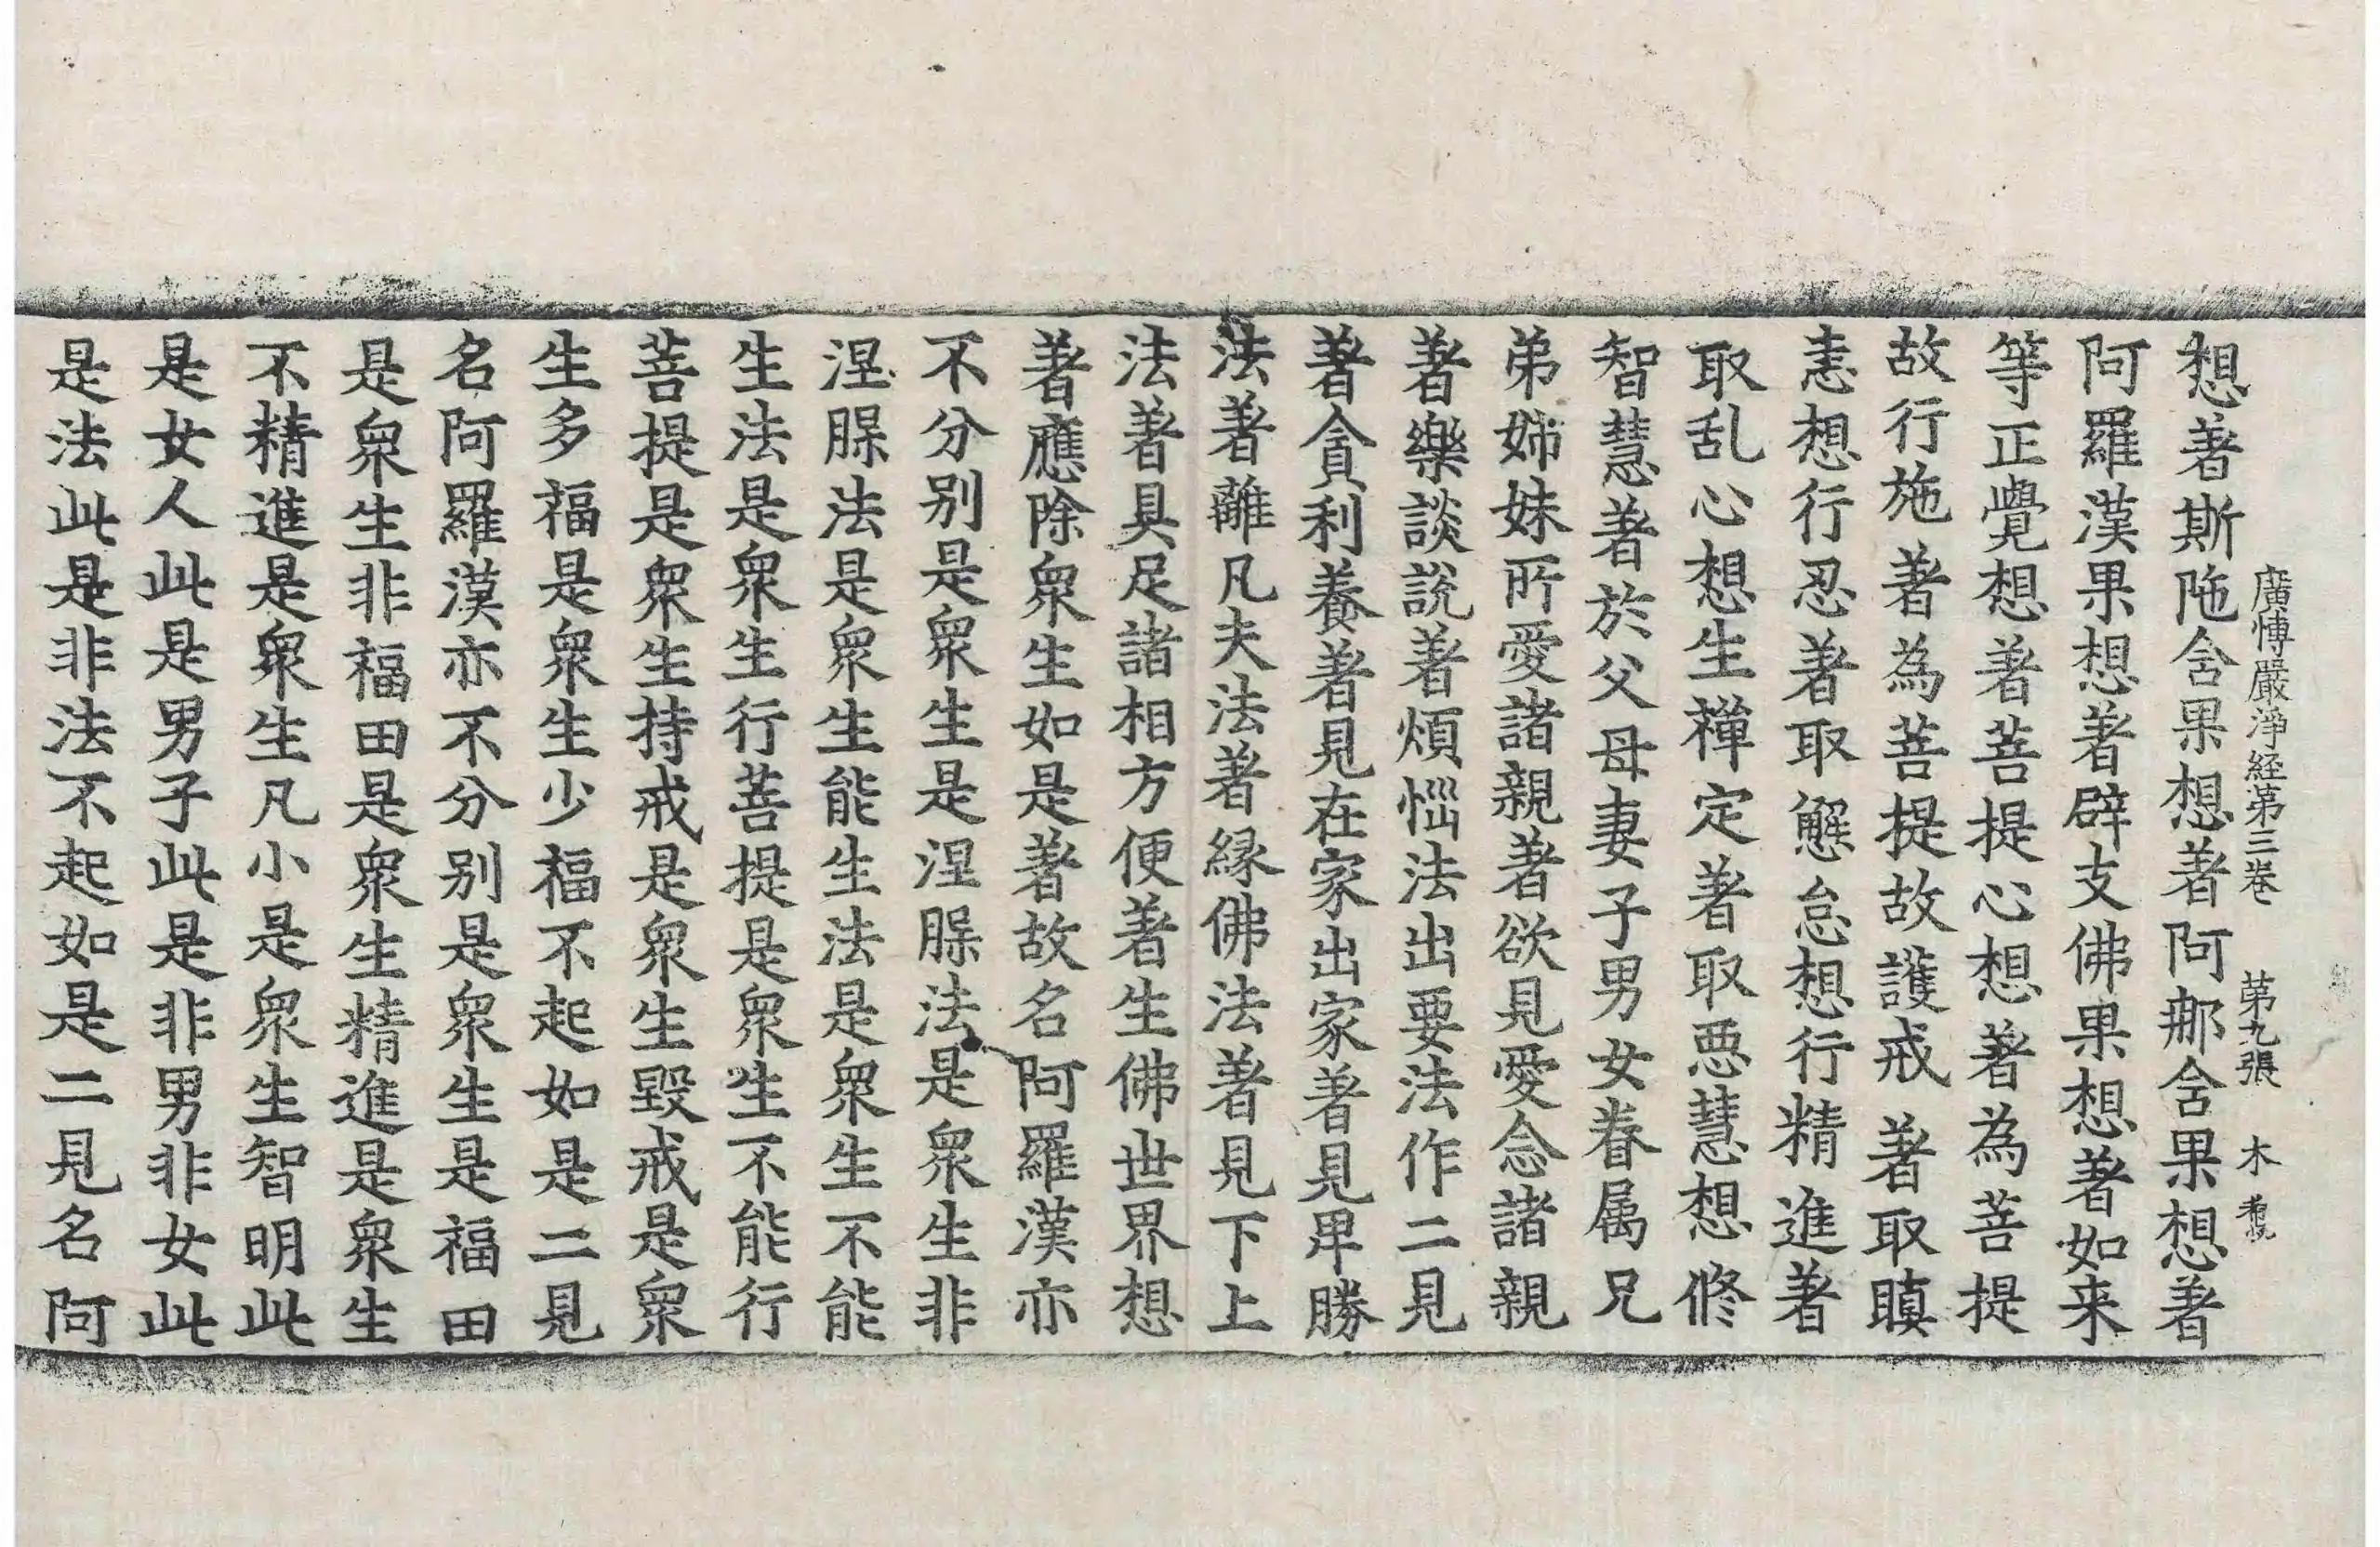 廣博嚴淨經第三卷 第九張 木
想著斯陁含果想著阿那含果想著
阿羅漢果想著辟支佛果想著如来
等正覺想著菩提心想著為菩提
故行施著為菩提故護戒著取瞋
恚想行忍著取懈怠想行精進著
取乱心想生禪定著取惡慧想修
智慧著於父母妻子男女眷属兄
弟姊妹所愛諸親著欲見愛念諸親
著樂談說著煩惱法出要法作二見
著貪利養著見在家出家著見卑勝
法著離凡夫法著縁佛法著見下上
法著具足諸相方便著生佛世界想
著應除衆生如是著故名阿羅漢亦
不分别是衆生是涅槃法是衆生非
涅槃法是衆生能生法是衆生不能
生法是衆生行菩提是衆生不能行
菩提是衆生持戒是衆生毀戒是衆
生多福是衆生少福不起如是二見
名阿羅漢亦不分别是衆生是福田
是衆生非福田是衆生精進是衆生
不精進是衆生凡小是衆生智明此
是女人此是男子此是非男非女此
是法此是非法不起如是二見名阿